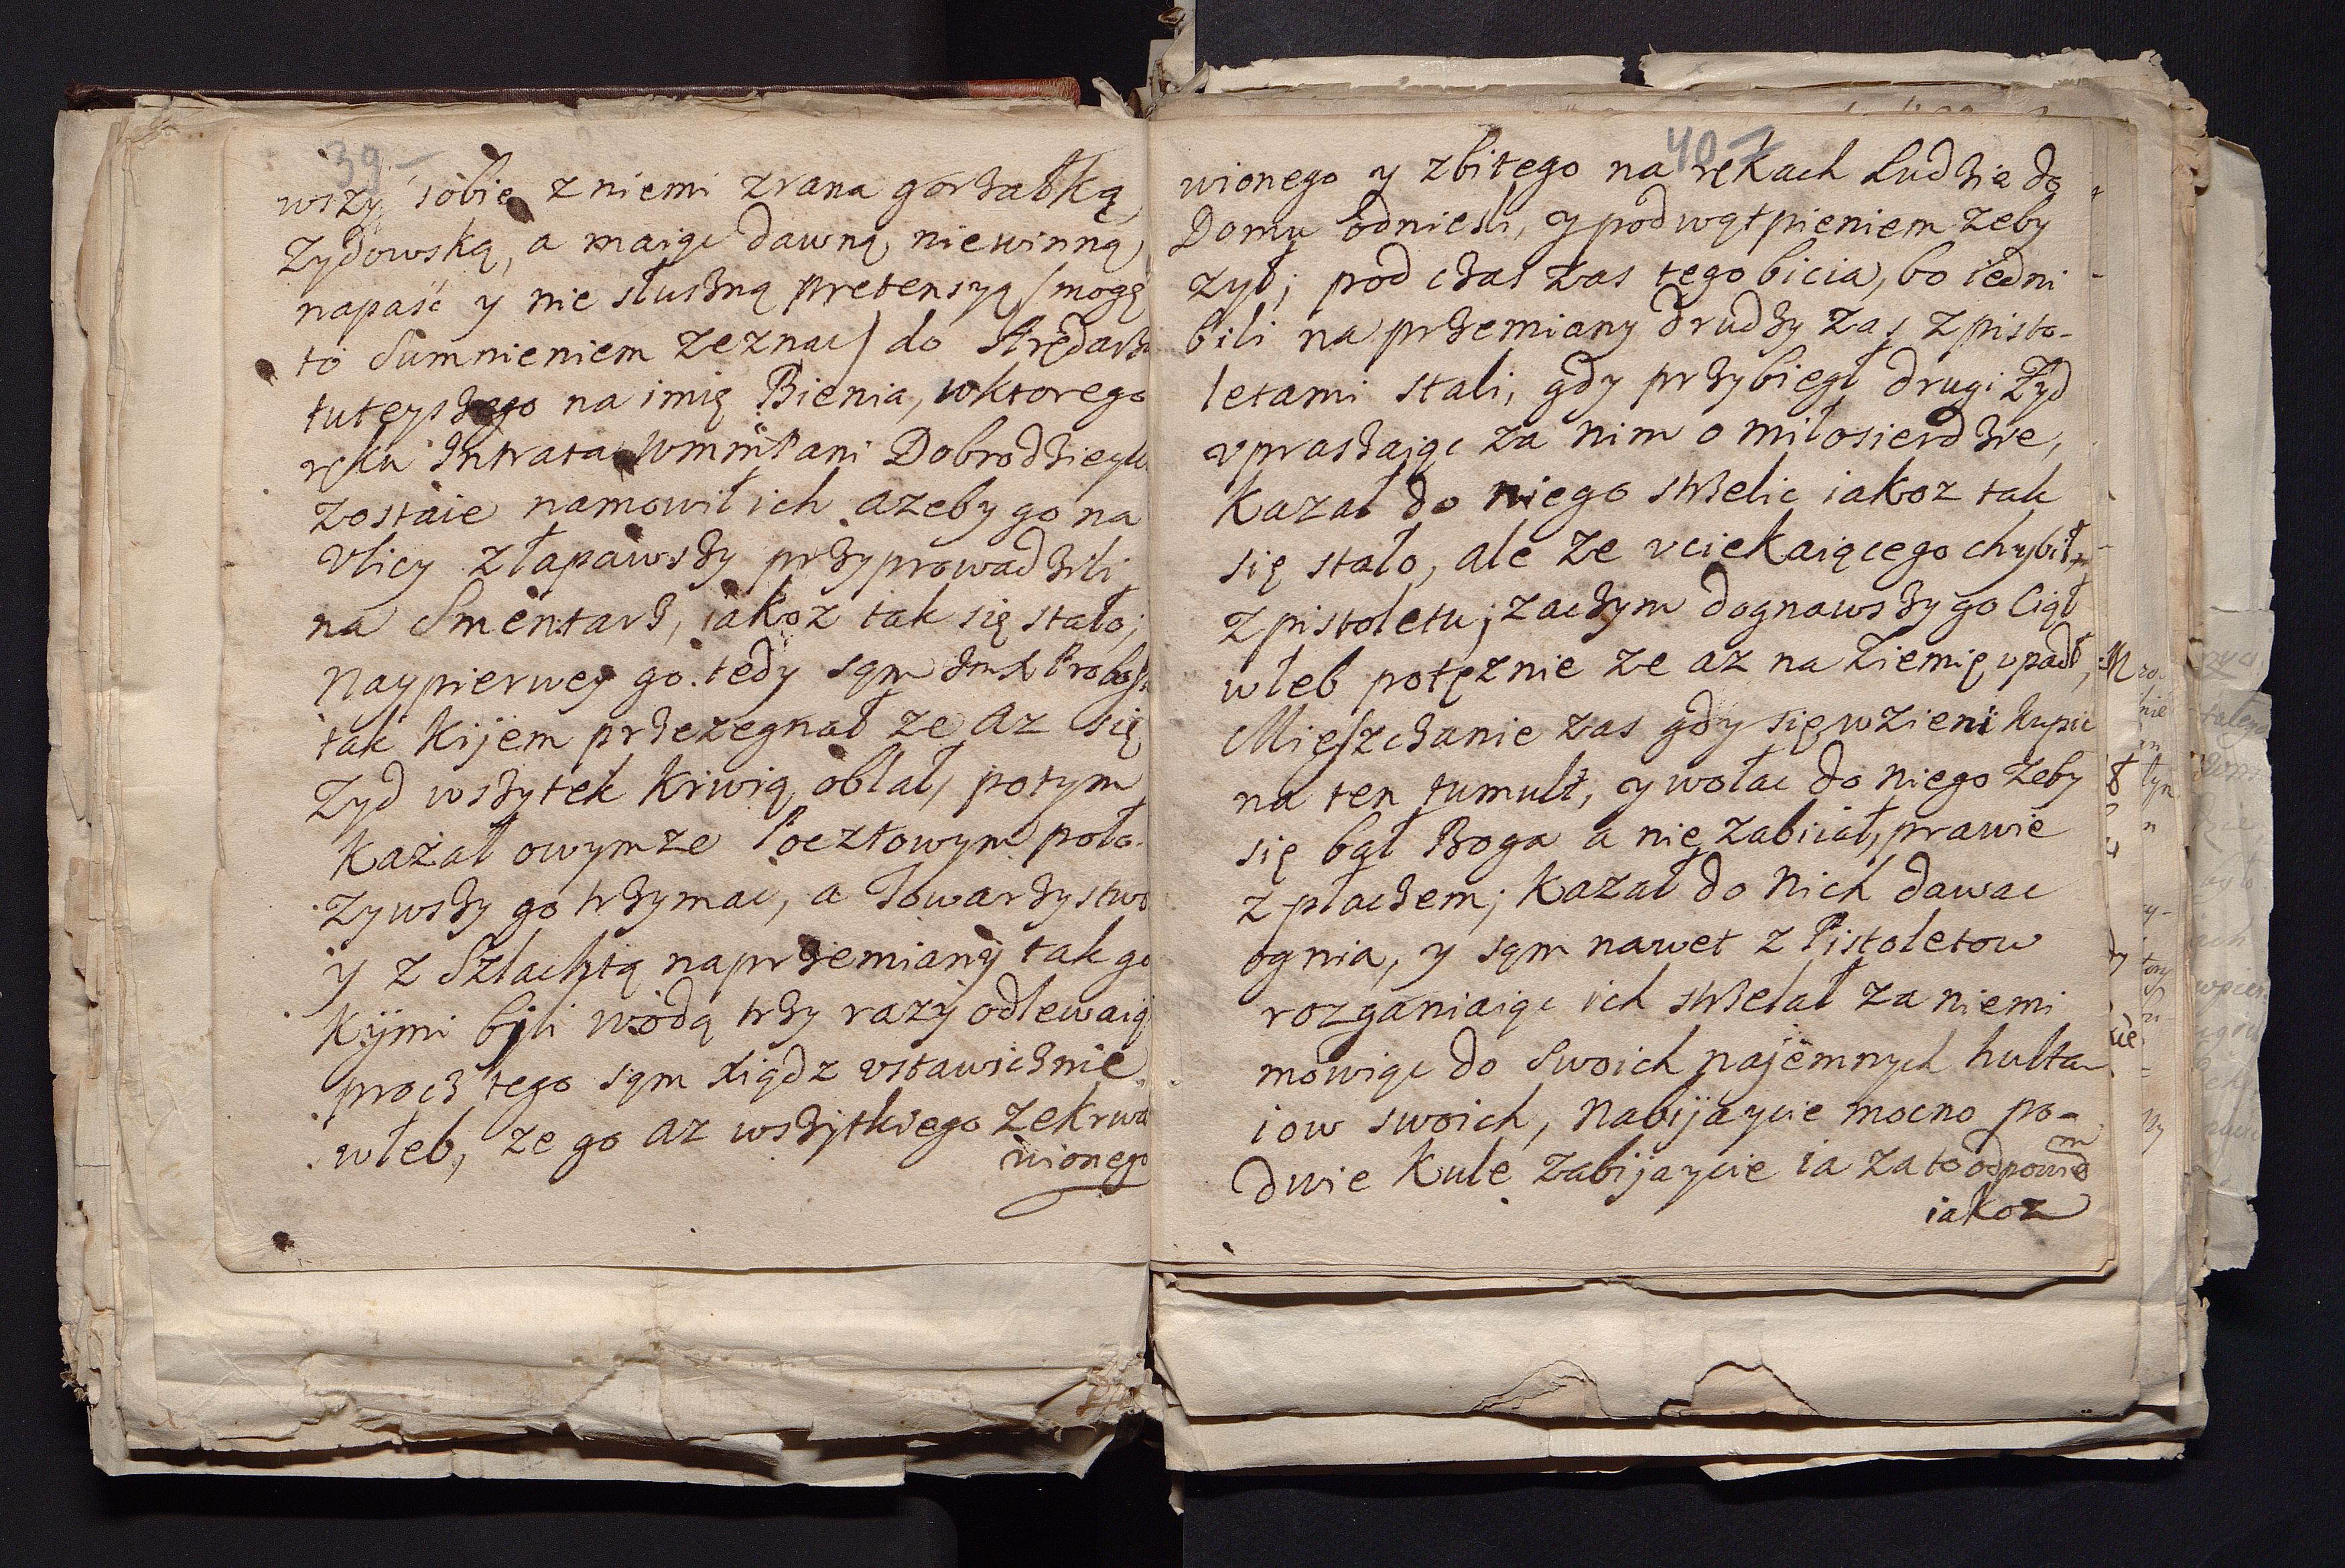 39
wszy sobie z niemi zrana gorzałką
Zydowską, a maiąc dawną, niewinną
napaść y nie słuszną pretensyą /mogę
to Sumnieniem zeznac/ do Arędarza
tuteyszego na imię Bienia, wktorego
ręku Intrata Pani Dobrodzieyki
zostaie namowił ich azeby go na
Vlicy złapawszy przyprowadzili
na Smentarz, iakoz tak się stało;
Naypierwey go tedy sąm
tak Kijem przezegnał ze Az się
Zyd wszytek Krwią oblał, potym
Kazał owymze Pocztowym poło-
zywszy go trzymac, a Towarzystwo
y z Szlachtą naprzemiany tak go
Kijmi bili wodą trzy razy odlewaiąc
procz tego sąm Xiądz vstawicznie
włeb, ze go az wszytkiego zekrwa
wionego
40
wionego y zbitego na rękach Ludzie do
Domu odniesli, y podwątpieniem zeby
zył; pod czas zas tego bicia, bo iedni
bili na przemiany drudzy zas z pisto-
letami stali, gdy przybiegł drugi Zyd
vpraszaiąc za nim o miłosierdzie,
Kazał do niego strzelic iakoz tak
się stało, ale ze vciekaiącego chybił
z pistoletu; zaczym dognawszy go Ciął
włeb potęznie ze az na Ziemię vpadł,
Mieszczanie zas gdy się wzieni kupic
na ten tumult, y wołac do niego zeby
się bał Boga a nie zabiiał, prawie
z płaczem; Kazał do Nich dawac
ognia, y sąm nawet z Pistoletow
rozganiaiąc ich strzelał za niemi
mowiąc do Swoich najemnych hulta-
iow swoich, Nabijaycie mocno po-
dwie Kule Zabijaycie ia za to odpowiem
iakoz